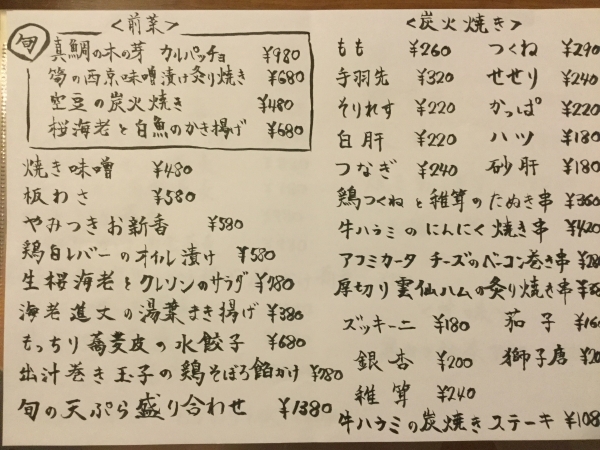 <前菜>
旬
真鯛の木の芽 カルパッチョ ¥980
筍の西京味噌漬け炙り焼き ¥680
空豆の炭火焼き ¥480
桜海老と白魚のかき揚げ ¥680
焼き味噌 ¥480
板わさ ¥580
やみつきお新香 ¥580
鶏白レバーのオイル漬け ¥580
生桜海老とクレソンのサラダ ¥780
海老道大の湯葉まき揚げ ¥380
もっちり蕎麦皮の水餃子 ¥680
出汁巻き玉子の鶏そぼろ餡かけ ¥780
旬の天ぷら盛り合わせ ¥1380
<炭火焼き>
もも ¥260 つくね ¥290
手羽先 ¥320 せせり ¥240
そりれす ¥220 かっぱ ¥220
白肝 ¥220 ハツ ¥180
つなぎ ¥240 砂肝 ¥180
鶏つくねと稚筍のたぬき串 ¥360
牛ハラミのにんにく焼き串 ¥420
アフミカータ チーズのベーコン巻き串
厚切り雲仙ハムの炙り焼き串
ズッキーニ ¥180 茄子
銀杏 ¥200 獅子唐
稚筍 ¥240
牛ハラミの炭焼きステーキ